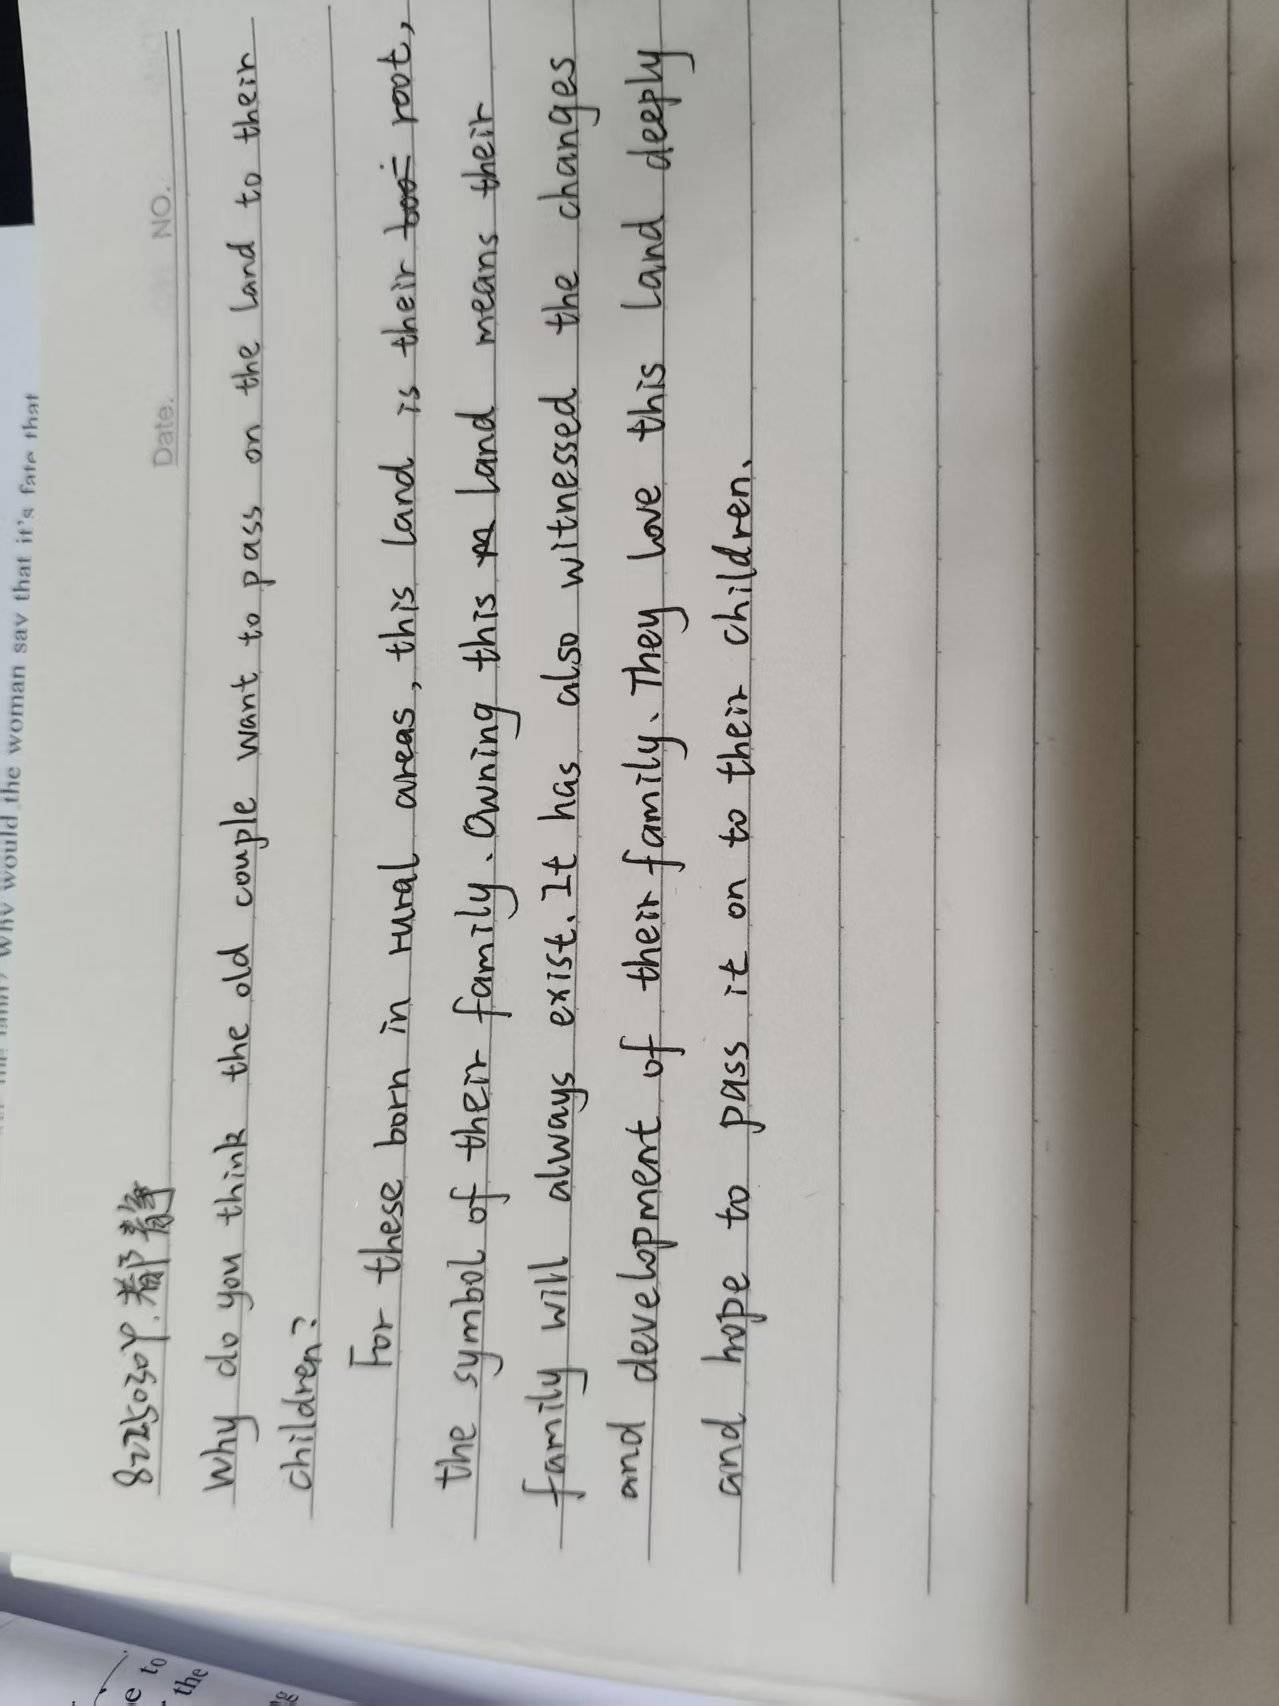 Why would the woman say that it's fate that
Date. NO.
8225030Y.郗静
Why do you think the old couple want to pass on the land to their
children?
For these born in rural areas, this land is their root,
the symbol of their family. Owning this land means their
family will always exist. It has also witnessed the changes
and development of their family. They love this land deeply
and hope to pass it on to their children.
e to
the